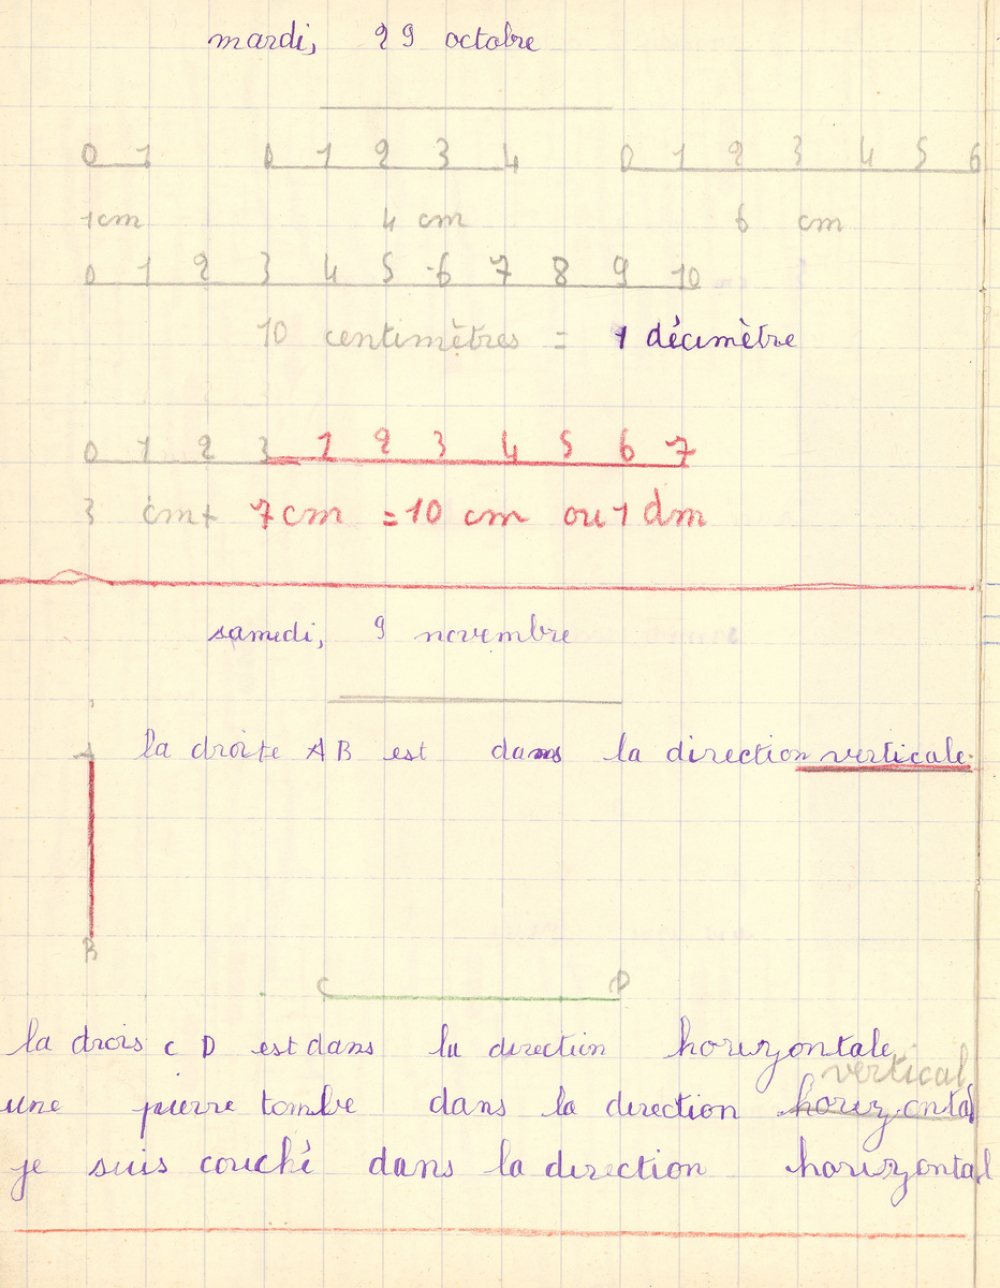 mardi, 29 octobre
0 1 0 1 2 3 4 0 1 2 3 4 5 6
1cm 4 cm 6 cm
0 1 2 3 4 5 6 7 8 9 10
10 centimètres = 1 décimètre
0 1 2 3 1 2 3 4 5 6 7
3 cm+ 7cm = 10 cm ou 1 dm
samedi, 9 novembre
A la droite AB est dans la direction verticale.
B
C D
la drois C D est dans la direction horizontale
vertical
une pierre tombe dans la direction horizontal
je suis couché dans la direction horizontal